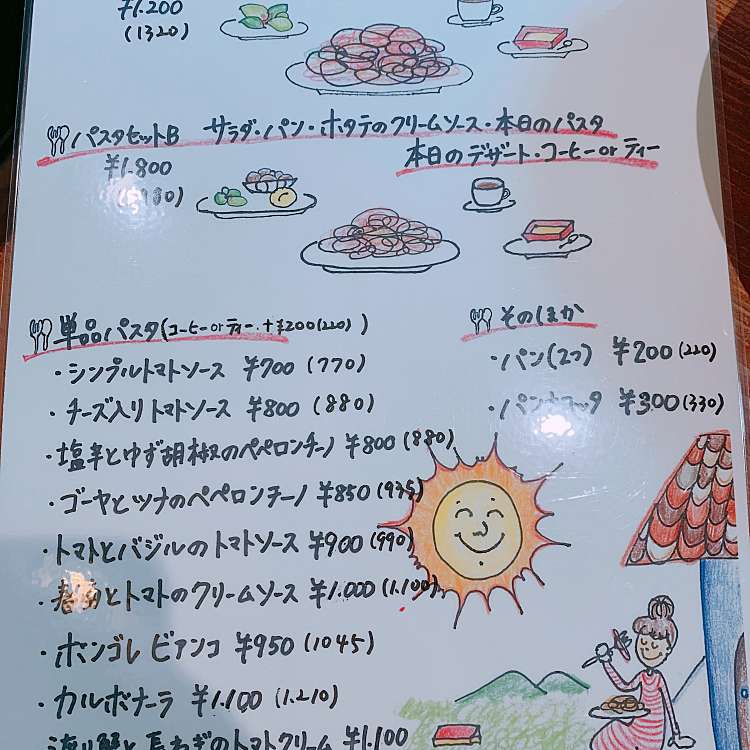 ¥1.200
(1320)
パスタセットB サラダ・パン・ホタテのクリームソース・本日のパスタ
¥1.800
本日のデザート・コーヒーorティー
単品パスタ(コーヒーorティー.+¥200(220))
・シンプルトマトソース ¥700(770)
・チーズ入りトマトソース ¥800(880)
・塩辛とゆず胡椒のペペロンチーノ ¥800(880)
・ゴーヤとツナのペペロンチーノ ¥850(935)
・トマトとバジルのトマトソース ¥900(990)
とトマトのクリームソース ¥1.000(1.100)
・ボンゴレ ビアンコ ¥950(1045)
・カルボナーラ ¥1.100(1.210)
と長ねぎのトマトクリーム ¥1.100
そのほか
・パン(2つ) ¥200(220)
・パンナコッタ ¥300(330)